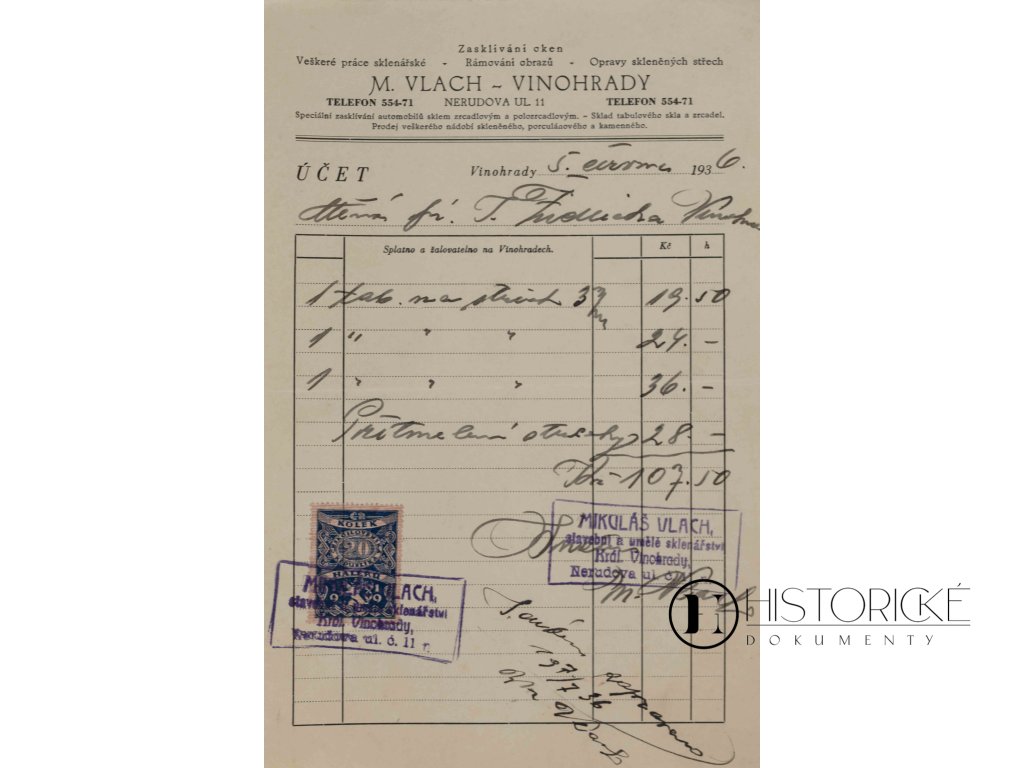 Zasklívání oken
Veškeré práce sklenářské - Rámování obrazů - Opravy skleněných střech
M. VLACH ~ VINOHRADY
TELEFON 554-71 NERUDOVA UL. 11 TELEFON 554-71
Speciální zasklívání automobilů sklem zrcadlovým a polozrcadlovým. – Sklad tabulového skla a zrcadel.
Prodej veškerého nádobí skleněného, porculánového a kamenného.
ÚČET Vinohrady 5. června 1936.
fi.
Splatno a žalovatelno na Vinohradech. Kč h
1 tab. na střech 19.50
1 " " " 24.–
1 " " " 36.–
Přitmelení 28.–
107.50
KOLEK
20
HALÉŘŮ
MIKULÁŠ VLACH,
stavební a umělé sklenářství
Král. Vinohrady,
Nerudova ul. č.
M. Vlach
VLACH,
sklenářství
Král. Vinohrady,
Nerudova ul. č. 11 n.
zapraveno
7/36
Vlach
HISTORICKÉ
DOKUMENTY